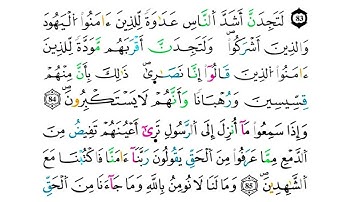 83 لَتَجِدَنَّ أَشَدَّ النَّاسِ عَدَاوَةً لِّلَّذِينَ ءَامَنُوا الْيَهُودَ
وَالَّذِينَ أَشْرَكُوا ۖ وَلَتَجِدَنَّ أَقْرَبَهُم مَّوَدَّةً لِّلَّذِينَ
ءَامَنُوا الَّذِينَ قَالُوٓا إِنَّا نَصَـٰرَىٰ ۚ ذَٰلِكَ بِأَنَّ مِنْهُمْ
قِسِّيسِينَ وَرُهْبَانًا وَأَنَّهُمْ لَا يَسْتَكْبِرُونَ 84
وَإِذَا سَمِعُوا مَآ أُنزِلَ إِلَى الرَّسُولِ تَرَىٰٓ أَعْيُنَهُمْ تَفِيضُ مِنَ
الدَّمْعِ مِمَّا عَرَفُوا مِنَ الْحَقِّ ۖ يَقُولُونَ رَبَّنَآ ءَامَنَّا فَاكْتُبْنَا مَعَ
الشَّـٰهِدِينَ 85 وَمَا لَنَا لَا نُؤْمِنُ بِاللَّهِ وَمَا جَآءَنَا مِنَ الْحَقِّ